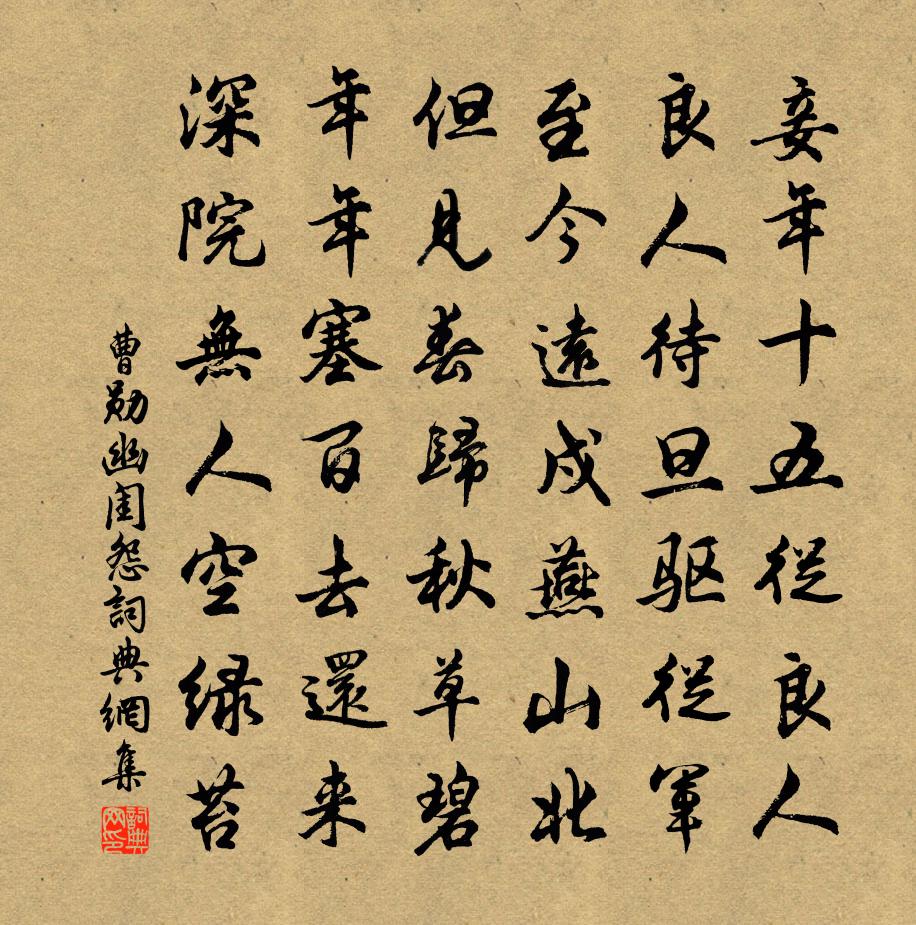 妾年十五從良人
良人待旦驱從軍
至今遠戍燕山北
但見春歸秋草碧
年年塞百去還来
深院無人空緑苔
曹勛幽闺怨詞典網集
詞典網印